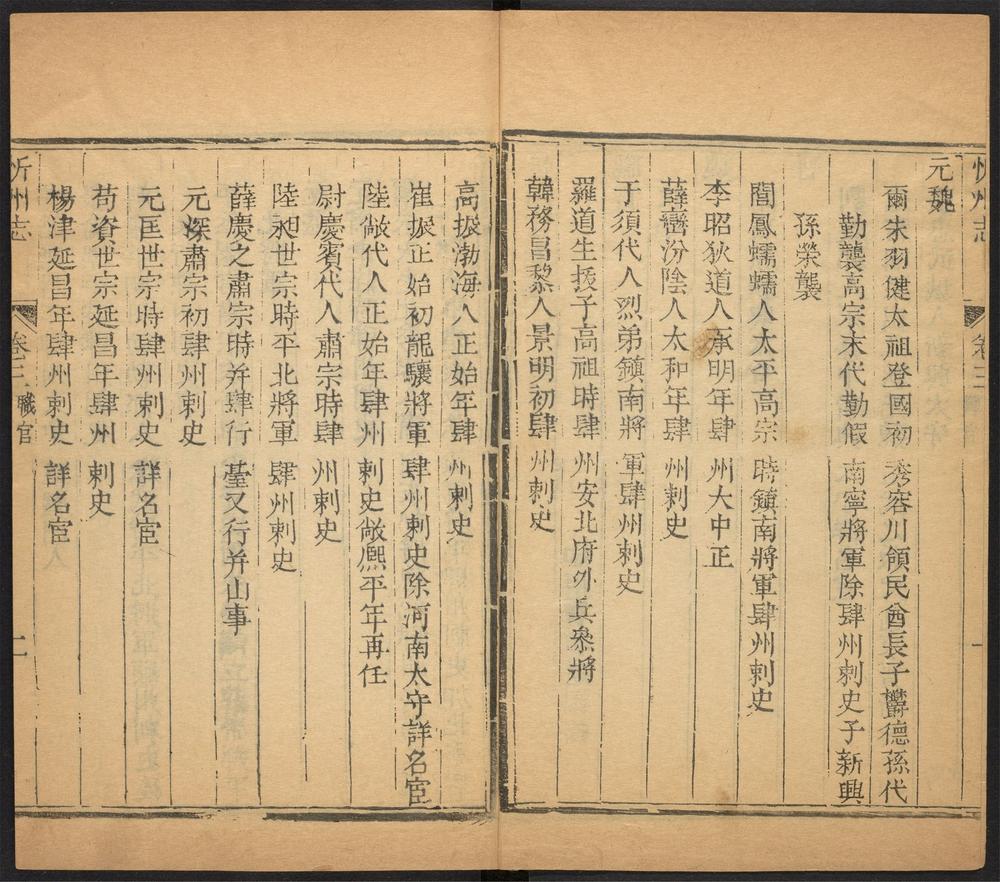 忻州志 卷三 一
元魏
爾朱羽健太祖登國初 秀容川領民酋長子鬱德孫代
勤襲高宗末代勤假 南寧將軍除肆州刺史子新興
孫榮襲
閭鳳蠕蠕人太平高宗 時鎮南將軍肆州刺史
李昭狄道人承明年肆 州大中正
薛巒汾陰人太和年肆 州刺史
于須代人烈弟鎮南將 軍肆州刺史
羅道生拔子高祖時肆 州安北府外兵叅將
韓務昌黎人景明初肆 州刺史
高振渤海人正始年肆 州刺史
崔振正始初龍驤將軍 肆州刺史除河南太守詳名宦
陸敞代人正始年肆州 刺史敞熈平年再任
尉慶賓代人肅宗時肆 州刺史
陸昶世宗時平北將軍 肆州刺史
薛慶之肅宗時并肆行 臺又行并山事
元深肅宗初肆州刺史
元匡世宗時肆州刺史 詳名宦
苟資世宗延昌年肆州 刺史
楊津延昌年肆州刺史 詳名宦
忻州志 卷三 職官 二